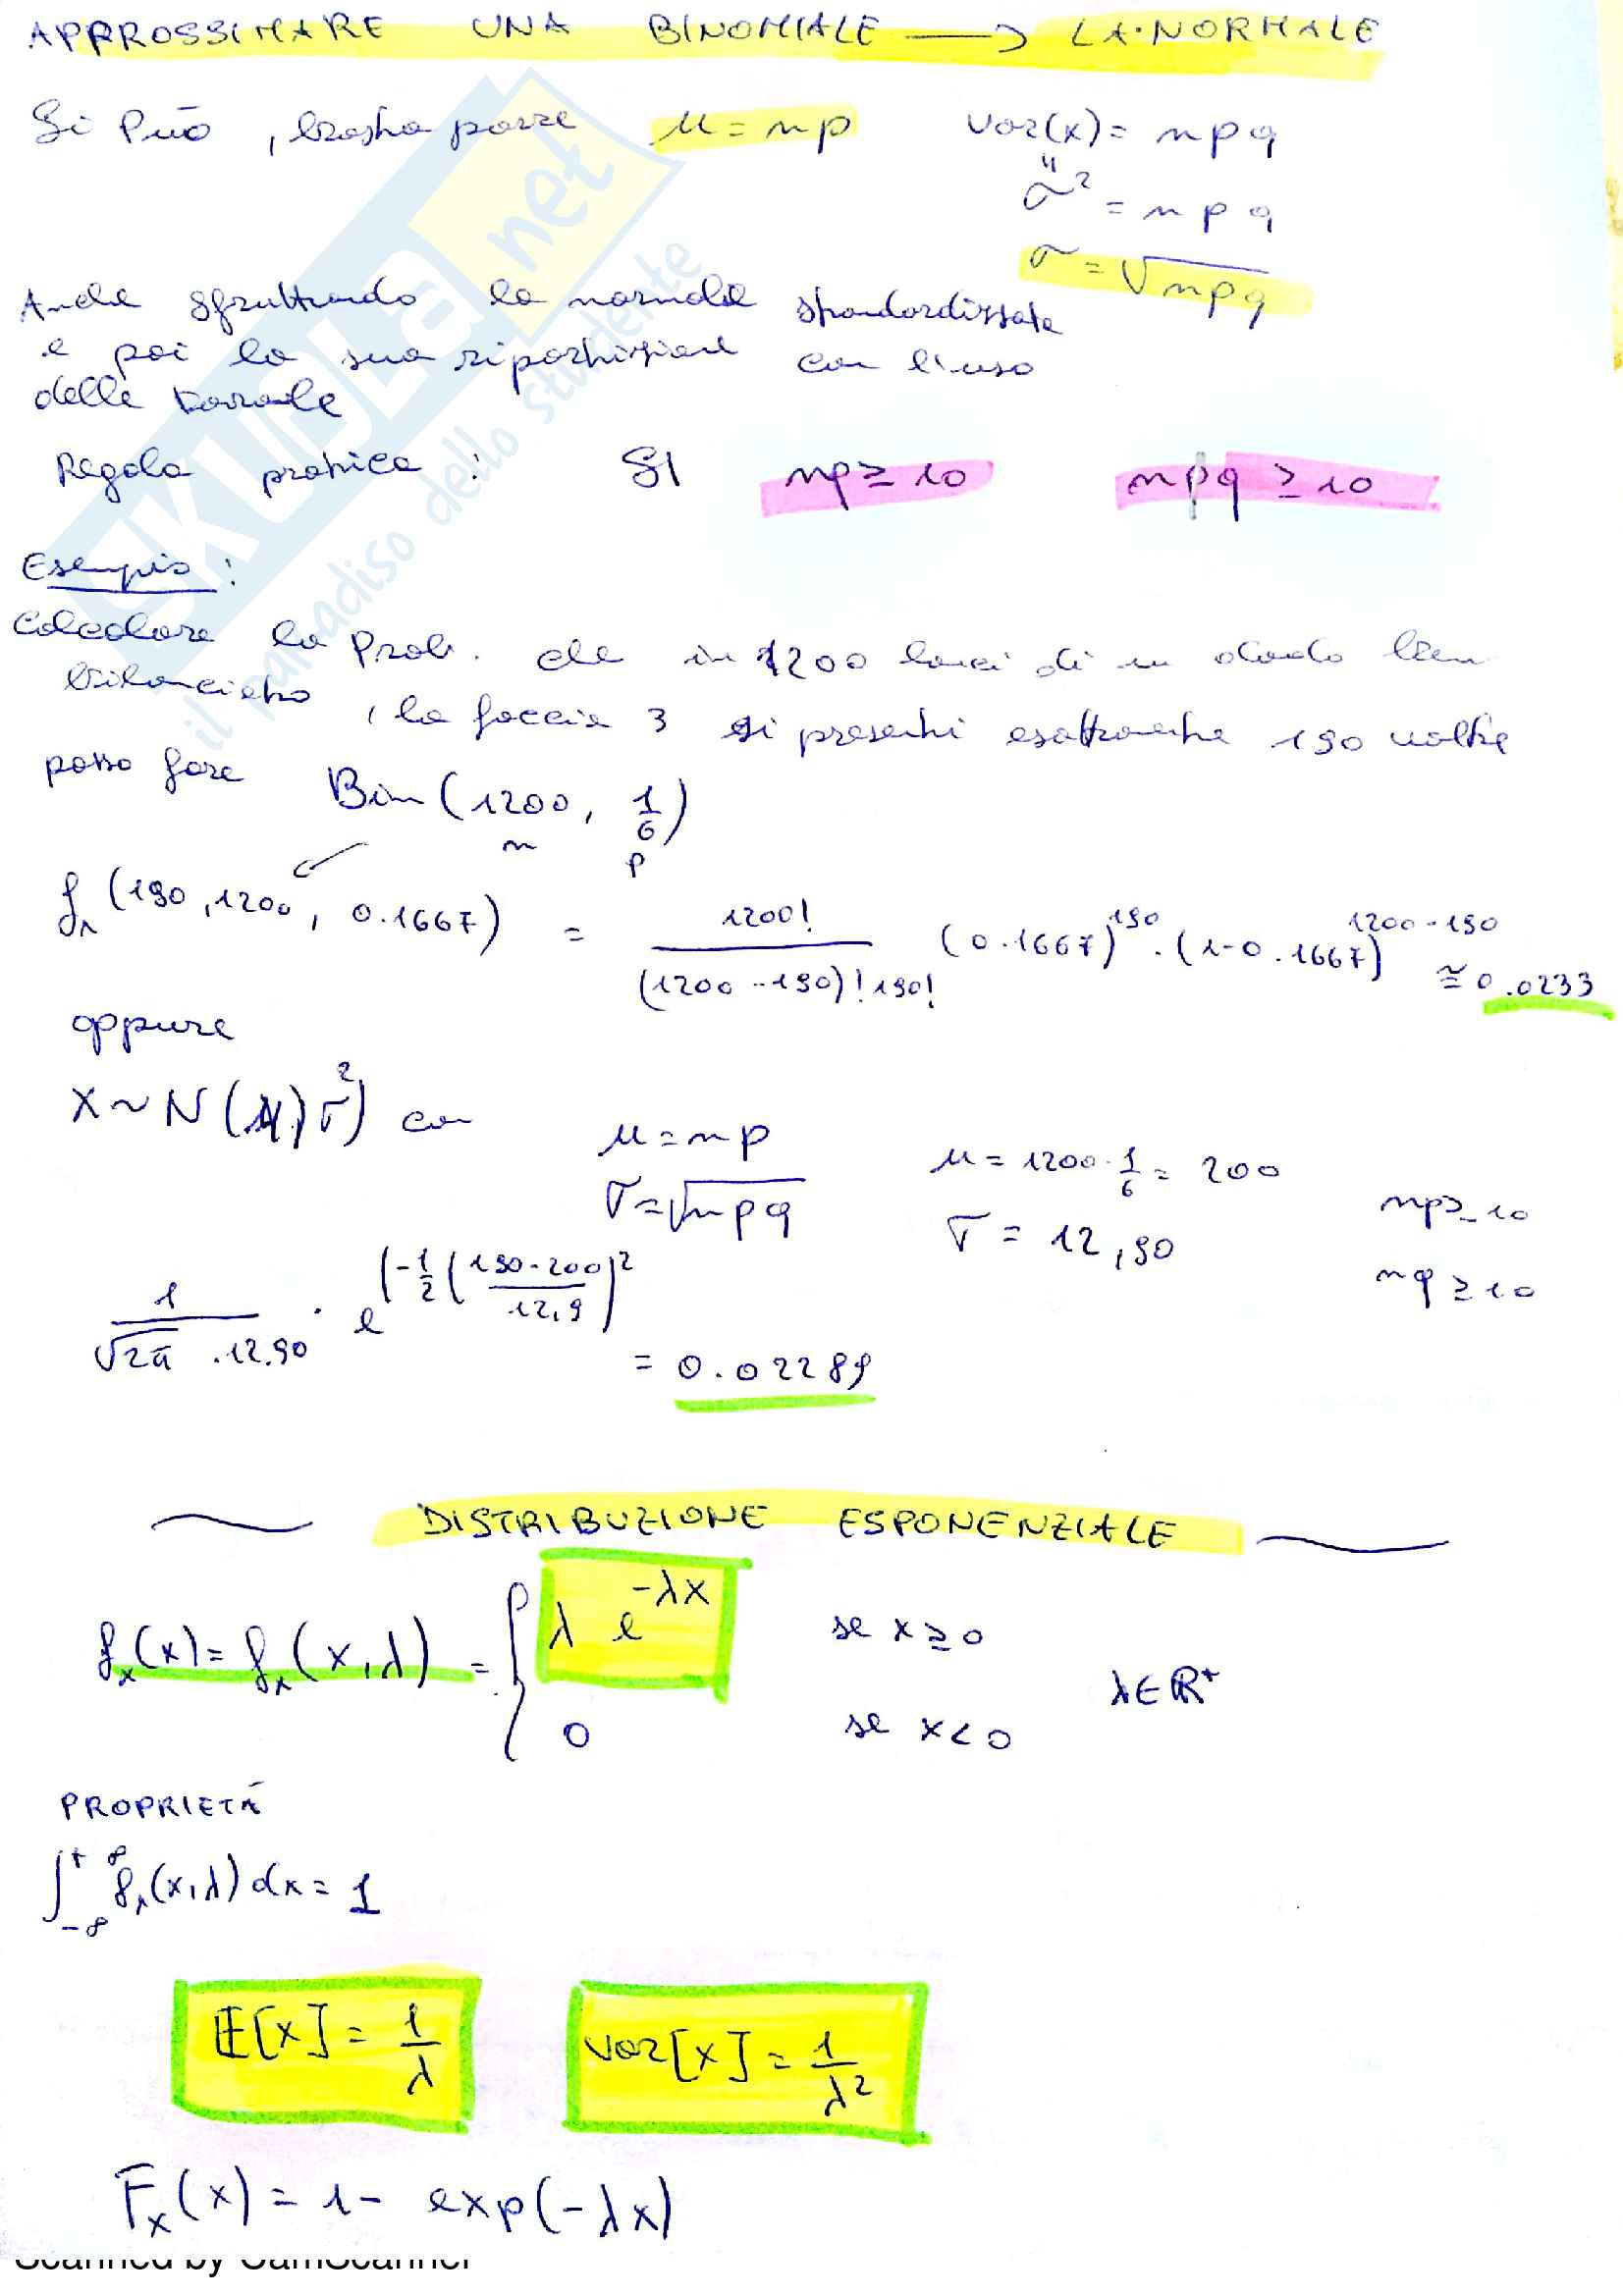 APPROSSIMARE UNA BINOMIALE → LA NORMALE
Si può, basta porre μ = np   var(x) = npq
σ² = npq
σ = √npq
Anche sfruttando la normale standardizzata
e poi la sua ripartizione con l'uso
delle tavole
Regola pratica : SI   np ≥ 10   npq ≥ 10
Esempio :
Calcolare la Prob. che in 1200 lanci di un dado ben
bilanciato, la faccia 3 si presenti esattamente 190 volte
posso fare Bin (1200, 1/6)
n   p
fx (190, 1200, 0.1667) = 1200! / (1200-190)! 190! (0.1667)^190 · (1-0.1667)^1200-190 ≅ 0.0233
oppure
X ~ N (μ, σ²) con   μ = np   μ = 1200 · 1/6 = 200   np ≥ 10
σ = √npq   σ = 12,90   nq ≥ 10
1 / √2π · 12.90 · e^(-1/2 (190-200 / 12,9)² = 0.02289
DISTRIBUZIONE ESPONENZIALE
fx(x) = fx(x,λ) = { λ e^-λx   se x ≥ 0
0   se x < 0   λ ∈ R⁺
PROPRIETÀ
∫-∞^+∞ fx(x,λ) dx = 1
E[x] = 1/λ   var[x] = 1/λ²
Fx(x) = 1 - exp(-λx)
Scanned by CamScanner
SKUOLA.net
il paradiso dello studente